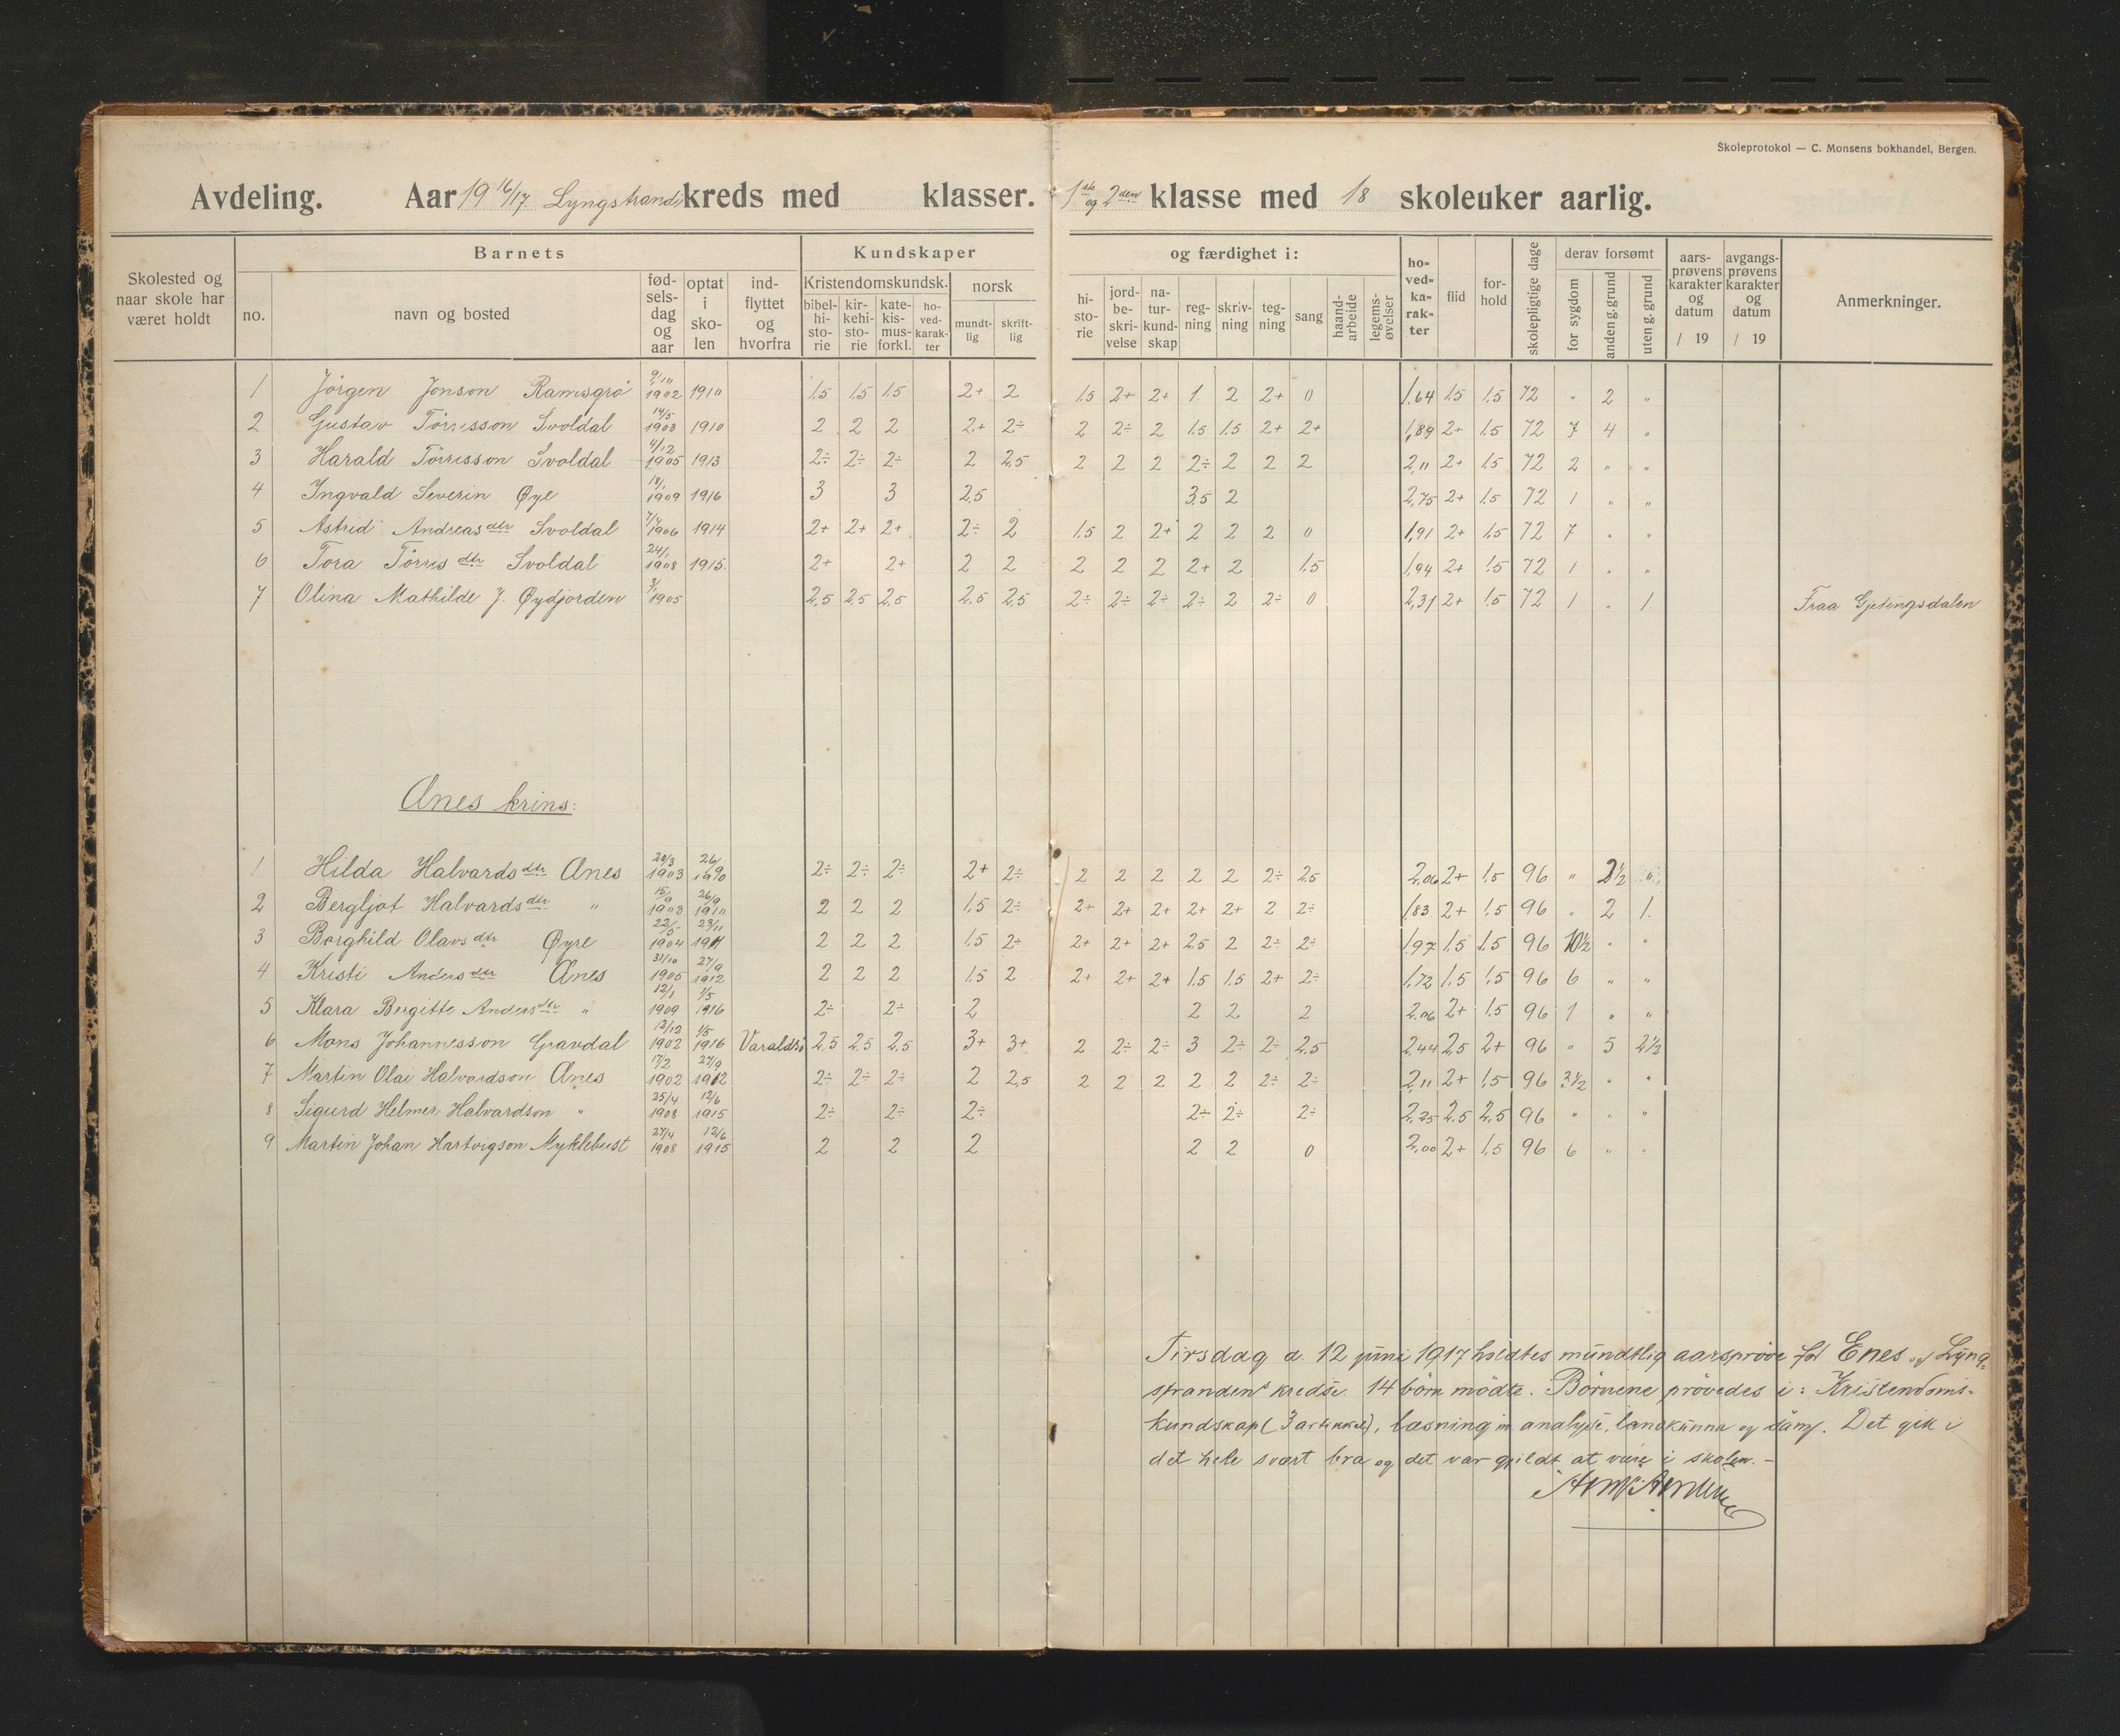 Skoleprotokol — C. Monsens bokhandel, Bergen.
Avdeling. Aar 19 16/17 Lyngstrand kreds med klasser. 1ste og 2den klasse med 18 skoleuker aarlig.
Skolested og naar skole har været holdt
Barnets
no.
navn og bosted
fødselsdag og aar
optat i skolen
indflyttet og hvorfra
Kundskaper og færdighet i:
Kristendomskundsk.
bibelhistorie
kirkehistorie
katekismusforkl.
hovedkarakter
norsk
mundtlig
skriftlig
historie
jordbeskrivelse
naturkundskap
regning
skrivning
tegning
sang
haandarbeide
legemsøvelser
hovedkarakter
flid
forhold
skolepligtige dage
derav forsømt
for sygdom
anden g. grund
uten g. grund
aarsprøvens karakter og datum / 19
avgangsprøvens karakter og datum / 19
Anmerkninger.
1 Jörgen Jonson Ramsgrö 9/10 1902 1910 1.5 1.5 1.5 2+ 2 1.5 2+ 2+ 1 2 2+ 0 1.64 1.5 1.5 72 " 2 "
2 Gustav Törresson Svoldal 14/5 1903 1910 2 2 2 2+ 2÷ 2 2÷ 2 1.5 1.5 2+ 2+ 1,89 2+ 1.5 72 7 4 "
3 Harald Törresson Svoldal 4/12 1905 1913 2÷ 2÷ 2÷ 2 2,5 2 2 2 2÷ 2 2 2 2,11 2+ 1.5 72 2 " "
4 Ingvald Severin Øye 18/1 1909 1916 3 3 2,5 3,5 2 2,75 2+ 1.5 72 1 " "
5 Astrid Andreasdtr Svoldal 7/4 1906 1914 2+ 2+ 2+ 2÷ 2 1.5 2 2+ 2 2 2 0 1,91 2+ 1.5 72 7 " "
6 Tora Törresdtr Svoldal 24/1 1908 1915. 2+ 2+ 2 2 2 2 2 2+ 2 1.5 1,94 2+ 1.5 72 1 " "
7 Olina Mathilde J. Øydjorden 3/1 1905 2,5 2,5 2,5 2,5 2,5 2÷ 2÷ 2÷ 2÷ 2 2÷ 0 2,31 2+ 1.5 72 1 . 1 Fraa Gjetingsdalen
Ænes krins:
1 Hilda Halvardsdtr Ænes 20/3 1903 2÷ 2÷ 2÷ 2+ 2÷ 2 2 2 2 2 2÷ 2,5 2,06 2+ 1.5 96 " 2½ "
2 Bergljot Halvardsdtr " 15/9 1903 26/9 1910 2 2 2 1.5 2÷ 2+ 2+ 2+ 2+ 2+ 2 2÷ 1,83 2+ 1.5 96 " 2 1.
3 Borghild Olavsdtr Øyre 22/5 1904 23/11 1911 2 2 2 1.5 2÷ 2+ 2+ 2+ 2.5 2 2÷ 2÷ 1,97 1.5 1.5 96 10½ " "
4 Kristi Andersdtr Ænes 31/10 1905 27/9 1912 2 2 2 1.5 2 2+ 2+ 2+ 1.5 1.5 2+ 2÷ 1,72 1.5 1.5 96 6 " "
5 Klara Bergitte Andersdtr " 12/1 1909 1/5 1916 2÷ 2÷ 2 2 2 2 2,06 2+ 1.5 96 1 " "
6 Mons Johannesson Gravdal 12/12 1902 1/5 1916 Varaldsö 2,5 2,5 2,5 3+ 3+ 2 2÷ 2÷ 3 2÷ 2÷ 2,5 2,44 2,5 2+ 96 " 5 2½
7 Martin Olai Halvardson Ænes 17/2 1902 27/9 1912 2÷ 2÷ 2÷ 2 2,5 2 2 2 2 2 2÷ 2÷ 2,11 2+ 1.5 96 3½ " "
8 Sigurd Helmer Halvardson " 25/4 1908 12/6 1915 2÷ 2÷ 2÷ 2÷ 2÷ 2÷ 2,25 2,5 2,5 96 " " "
9 Martin Johan Hartvigson Myklebust 27/4 1908 12/6 1915 2 2 2 2 2 0 2,00 2+ 1.5 96 6 " "
Tirsdag d. 12 juni 1917 holdtes mundtlig aarsprøve for Enes og Lyng-
strandens kredse. 14 børn mødte. Børnene prøvedes i: Kristendoms-
kundskap (3 artikkel), læsning m analyse, landkunna og sang. Det gik i
det hele svært bra og det var gildt at være i skolen. –